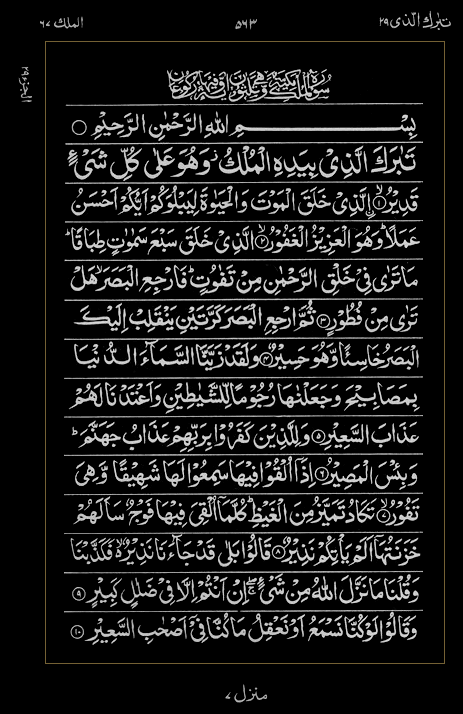 تبٰرك الذی ٢٩
٥٦٣
الملك ٦٧
الجزء ٢٩
سُوۡرَةُ الۡمُلۡكِ مَكِّيَّةٌ وَّهِيَ ثَلٰثُوۡنَ اٰيَةً وَّفِيۡهَا رُكُوۡعَانِ
بِسۡمِ اللهِ الرَّحۡمٰنِ الرَّحِيۡمِ
تَبٰرَكَ الَّذِىۡ بِيَدِهِ الۡمُلۡكُ ز وَهُوَ عَلٰى كُلِّ شَىۡءٍ
قَدِيۡرُ ۙ﴿١﴾ اۨلَّذِىۡ خَلَقَ الۡمَوۡتَ وَالۡحَيٰوةَ لِيَبۡلُوَكُمۡ اَيُّكُمۡ اَحۡسَنُ
عَمَلًا ؕ وَهُوَ الۡعَزِيۡزُ الۡغَفُوۡرُ ۙ﴿٢﴾ الَّذِىۡ خَلَقَ سَبۡعَ سَمٰوٰتٍ طِبَاقًا ؕ
مَا تَرٰى فِىۡ خَلۡقِ الرَّحۡمٰنِ مِنۡ تَفٰوُتٍ ؕ فَارۡجِعِ الۡبَصَرَ ۙ هَلۡ
تَرٰى مِنۡ فُطُوۡرٍ ﴿٣﴾ ثُمَّ ارۡجِعِ الۡبَصَرَ كَرَّتَيۡنِ يَنۡقَلِبۡ اِلَيۡكَ
الۡبَصَرُ خَاسِئًا وَّهُوَ حَسِيۡرٌ ﴿٤﴾ وَلَقَدۡ زَيَّنَّا السَّمَآءَ الدُّنۡيَا
بِمَصَابِيۡحَ وَجَعَلۡنٰهَا رُجُوۡمًا لِّلشَّيٰطِيۡنِ وَاَعۡتَدۡنَا لَهُمۡ
عَذَابَ السَّعِيۡرِ ﴿٥﴾ وَلِلَّذِيۡنَ كَفَرُوۡا بِرَبِّهِمۡ عَذَابُ جَهَنَّمَ ؕ
وَبِئۡسَ الۡمَصِيۡرُ ﴿٦﴾ اِذَاۤ اُلۡقُوۡا فِيۡهَا سَمِعُوۡا لَهَا شَهِيۡقًا وَّهِىَ
تَفُوۡرُ ۙ﴿٧﴾ تَكَادُ تَمَيَّزُ مِنَ الۡغَيۡظِ ؕ كُلَّمَاۤ اُلۡقِىَ فِيۡهَا فَوۡجٌ سَاَلَهُمۡ
خَزَنَتُهَاۤ اَلَمۡ يَاۡتِكُمۡ نَذِيۡرٌ ﴿٨﴾ قَالُوۡا بَلٰى قَدۡ جَآءَنَا نَذِيۡرٌ ۙ فَكَذَّبۡنَا
وَقُلۡنَا مَا نَزَّلَ اللهُ مِنۡ شَىۡءٍ ۚۖ اِنۡ اَنۡتُمۡ اِلَّا فِىۡ ضَلٰلٍ كَبِيۡرٍ ﴿٩﴾
وَقَالُوۡا لَوۡ كُنَّا نَسۡمَعُ اَوۡ نَعۡقِلُ مَا كُنَّا فِىۡۤ اَصۡحٰبِ السَّعِيۡرِ ﴿١٠﴾
منزل ٧